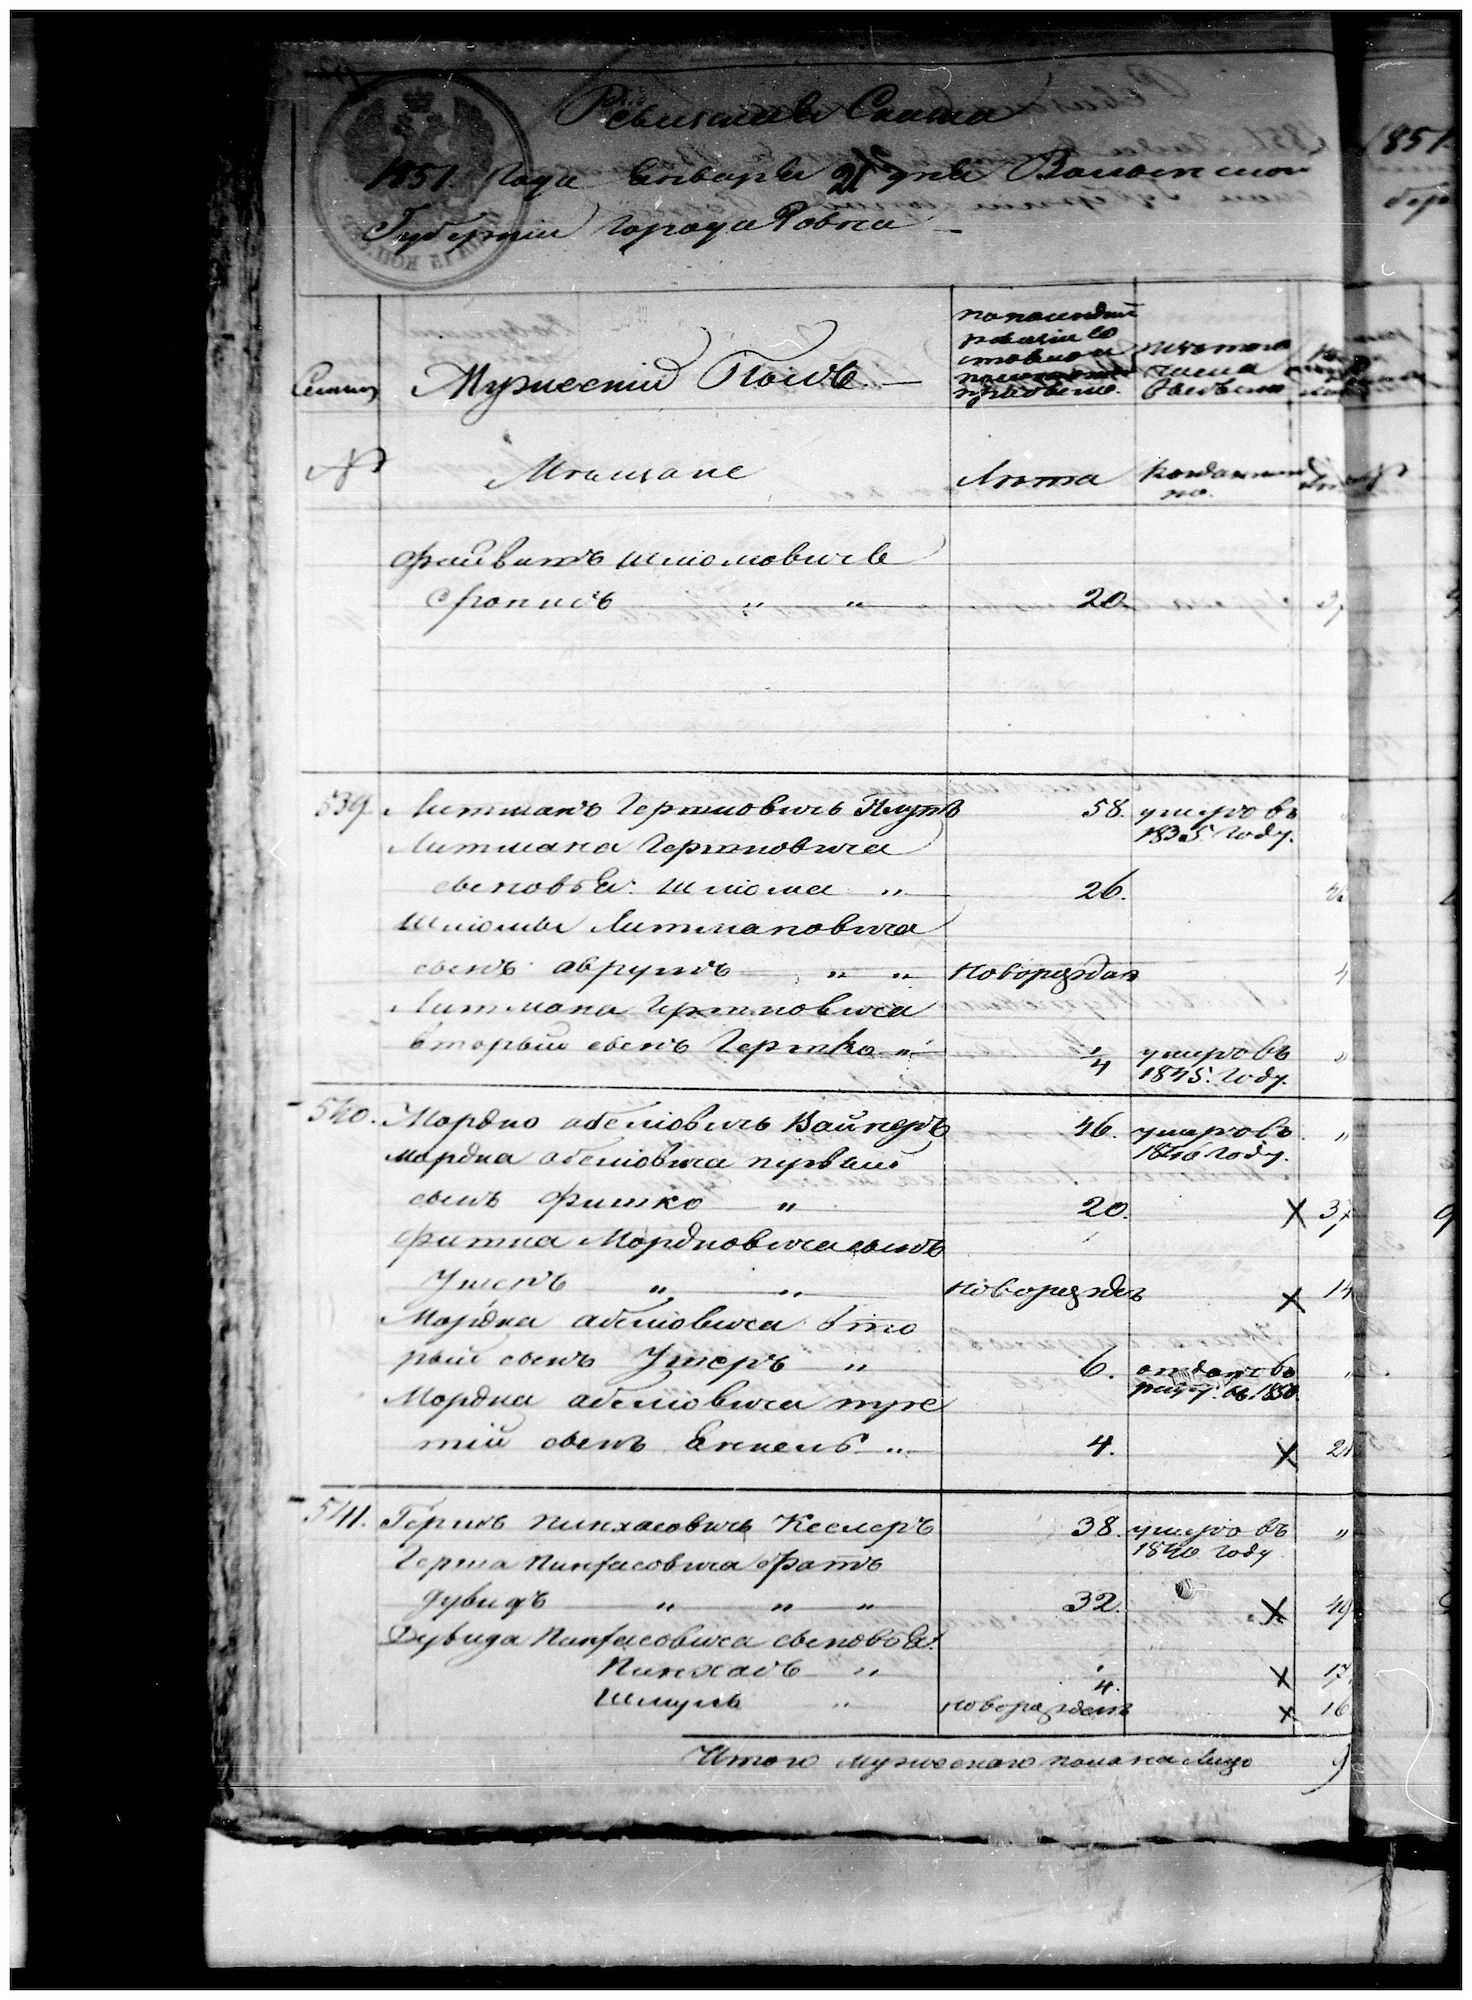 Ревизская Сказка
1851 Года Января 21 дня Волынской
Губернии Города Ровна
Семьи
Мужескій Полъ.
по последней ревизіи состояло и после того прибыло.
изъ того числа выбыло
№
Мещане
Лета
когда именно.
№
Файвишъ Шліомовича
20.
37
539 Литманъ Гершковичъ 58. умеръ въ
1835 Году.
Литмана Гершковича
сыновья: Шліома " 26.
Шліомы Литмановича
сынъ Аврумъ " " новорожден
Литмана Гершковича
вторый сынъ Гершко " 1/4 умеръ въ
1845. Году.
540. Мордко Абеліовичъ Вайнеръ 46. умеръ въ "
1846 Году.
Мордка Абеліовича первый
сынъ Фишко " 20. 37
Фишка Мордковича сынъ
Ушеръ " " новорожден 14
Мордка Абеліовича вто
рый сынъ Ушеръ " 6. отданъ въ
рекру. въ 1850.
Мордка Абеліовича тре
тій сынъ Янкель " 4. 21
541. Гершъ Пинхасовичъ Кеслеръ 38. умеръ въ "
1840 Году
Герша Пинхасовича братъ
Дувидъ " " " 32. 49
Дувида Пинхасовича сыновья:
Пинхасъ " 1/4. 17
Шмуль " новорожденъ 16
Итого мужескаго пола на Лицо 9